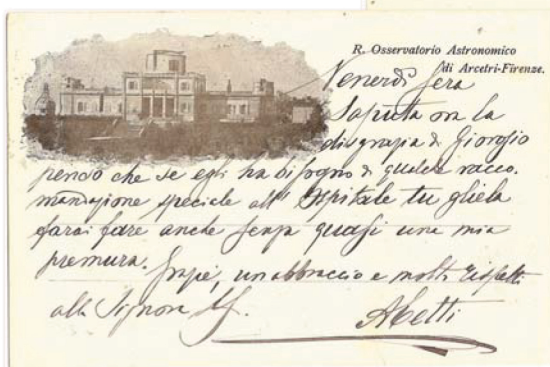 R. Osservatorio Astronomico
di Arcetri-Firenze.
Venerdì sera
Saputa ora la
disgrazia di Giorgio
penso che se egli ha bisogno di qualche racco.
mandazione speciale all'Ospitale tu gliela
farai fare anche senza quasi una mia
premura. Grazie, un abbraccio e molti rispetti
alla Signora
Abetti